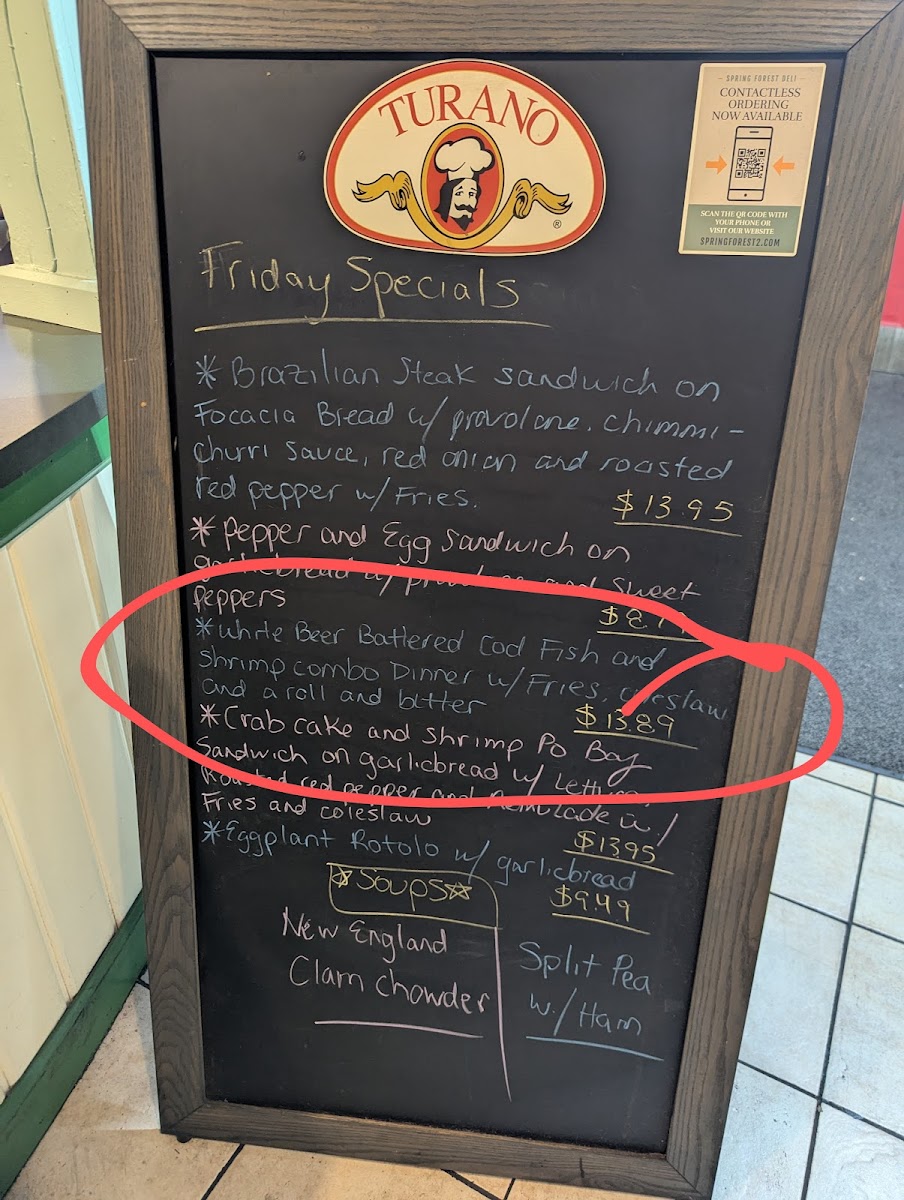 TURANO
®
SPRING FOREST DELI
CONTACTLESS
ORDERING
NOW AVAILABLE
SCAN THE QR CODE WITH
YOUR PHONE OR
VISIT OUR WEBSITE
SPRINGFOREST2.COM
Friday Specials
* Brazilian Steak sandwich on
Focacia Bread w/ provolone, chimmi-
churri sauce, red onion and roasted
red pepper w/ Fries. $13.95
* Pepper and Egg Sandwich on
garlicbread w/ and Sweet
Peppers $8.
* White Beer Battered Cod Fish and
shrimp combo Dinner w/ Fries, coleslaw
and a roll and butter $13.89
* Crab cake and shrimp Po Boy
Sandwich on garlicbread w/ Lettuce,
Roasted red pepper and w/
Fries and coleslaw $13.95
* Eggplant Rotolo w/ garlicbread
$9.49
Soups
New England
Clam Chowder
Split Pea
w./ Ham